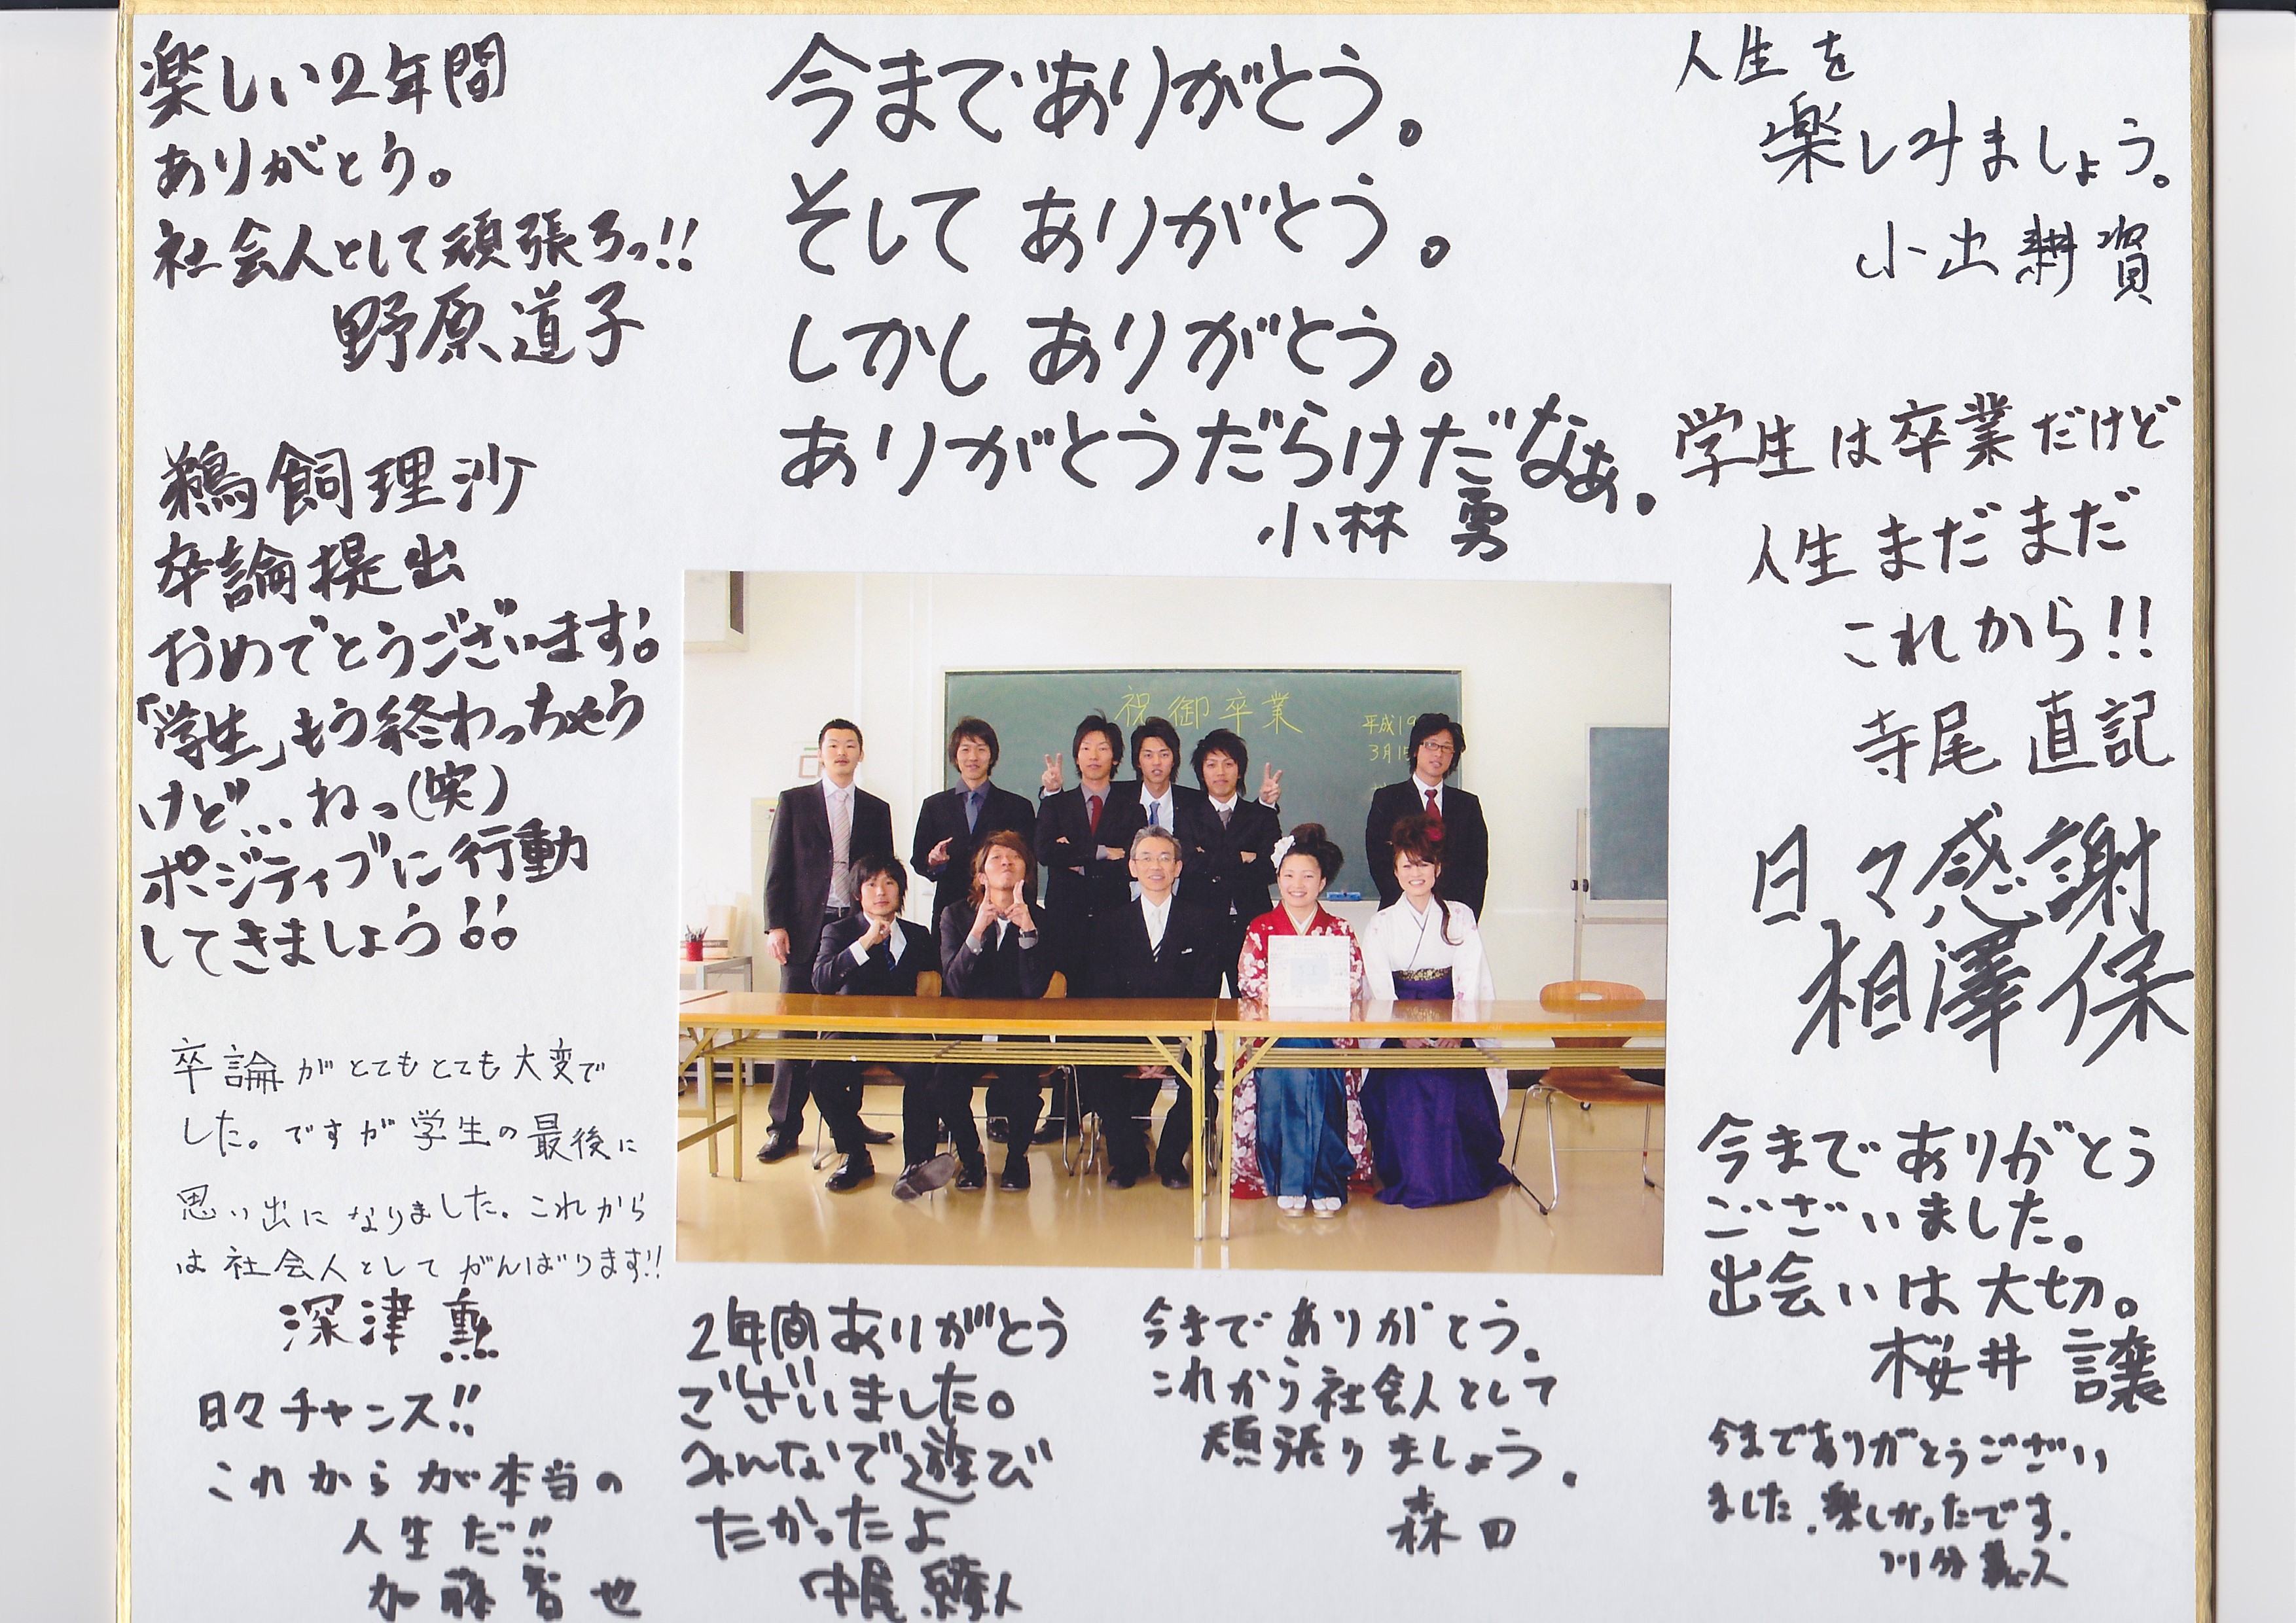 楽しい2年間
ありがとう。
社会人として頑張ろっ!!
野原道子
今までありがとう。
そして ありがとう。
しかし ありがとう。
ありがとうだらけだなぁ。
小林 勇
人生を
楽しみましょう。
小出耕資
鵜飼理沙
卒論提出
おめでとうございます!
「学生」もう終わっちゃう
けど…ねっ(笑)
ポジティブに行動
してきましょう!!
学生は卒業だけど
人生まだまだ
これから!!
寺尾 直記
祝御卒業
平成19
3月15
日々感謝
相澤保
卒論がとてもとても大変で
した。ですが学生の最後に
思い出になりました。これから
は社会人としてがんばります!!
深津 勲
日々チャンス!!
これからが本当の
人生だ!!
加藤智也
2年間ありがとう
ございました。
みんなで遊び
たかったよ
中尾 綾人
今までありがとう.
これから社会人として
頑張りましょう.
森田
今までありがとう
ございました。
出会いは大切。
桜井 譲
今までありがとうござい
ました.楽しかったです.
川分